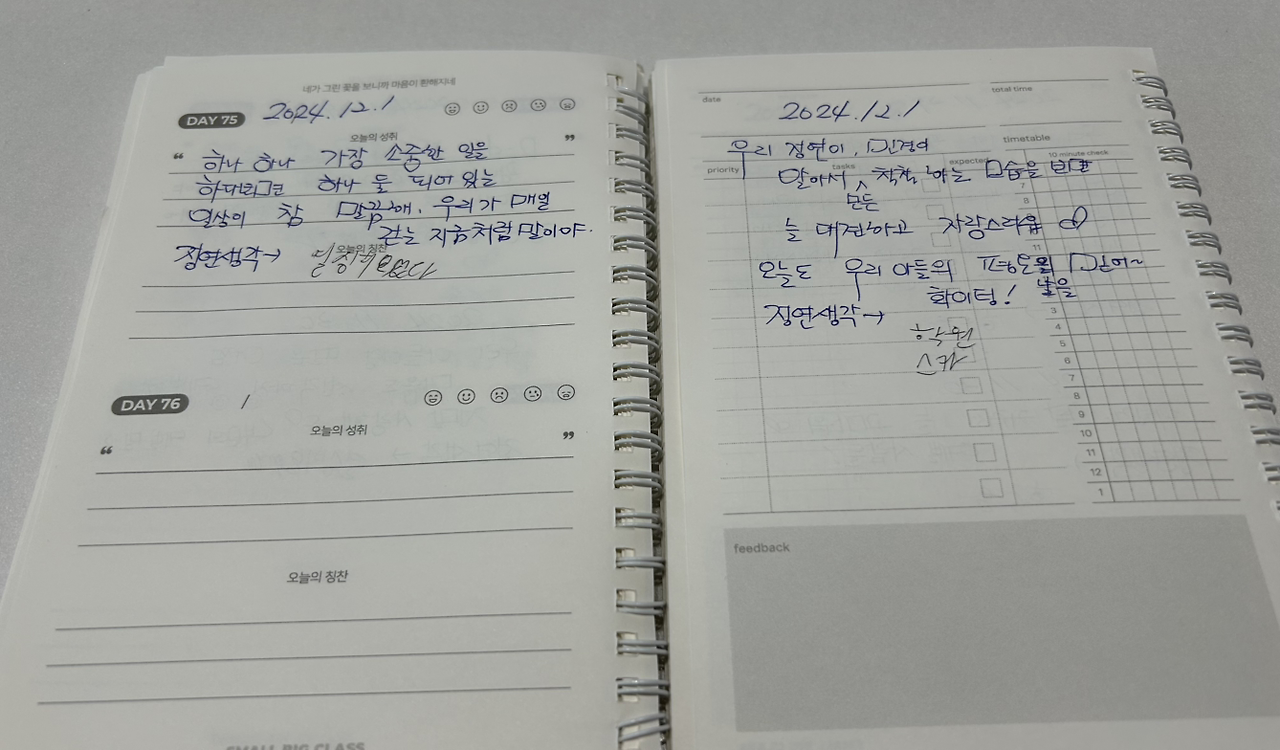 네가 그린 꽃을 보니까 마음이 환해지네
DAY 75 2024.12.1
오늘의 성취
“ ”
하나 하나 가장 소중한 일을
하다라고 하나 둘 되어 있는
일상이 참 말끔해. 우리가 매일
걷는 지금처럼 말이야.
오늘의 칭찬
정연생각→
DAY 76 /
오늘의 성취
“ ”
오늘의 칭찬
SMALL BIG CLASS
date 2024.12.1 total time
우리 정연이, 민결이 timetable
priority tasks expected 10 minute check
알아서 모든 척척 하는 모습을 보면
7
8
늘 대견하고 자랑스러움
11
오늘도 우리 아들의 평온의 날을 믿어~
화이팅!
정연생각→
3
학원 4
5
스카 6
7
8
9
10
11
12
1
feedback